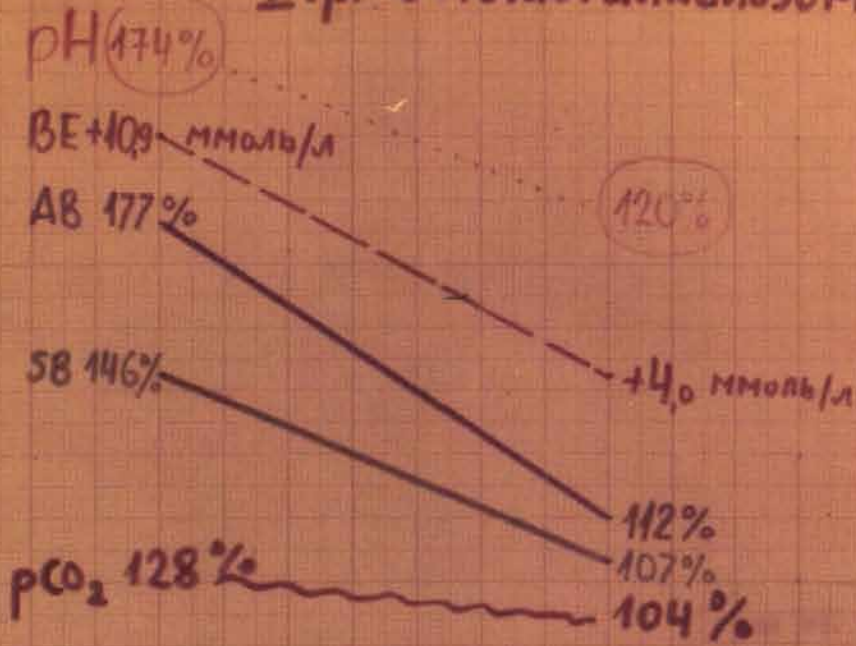 pH 174%
BE+10,9 ммоль/л
120%
AB 177%
SB 146%
+4,0 ммоль/л
112%
107%
pCO₂ 128%
104%